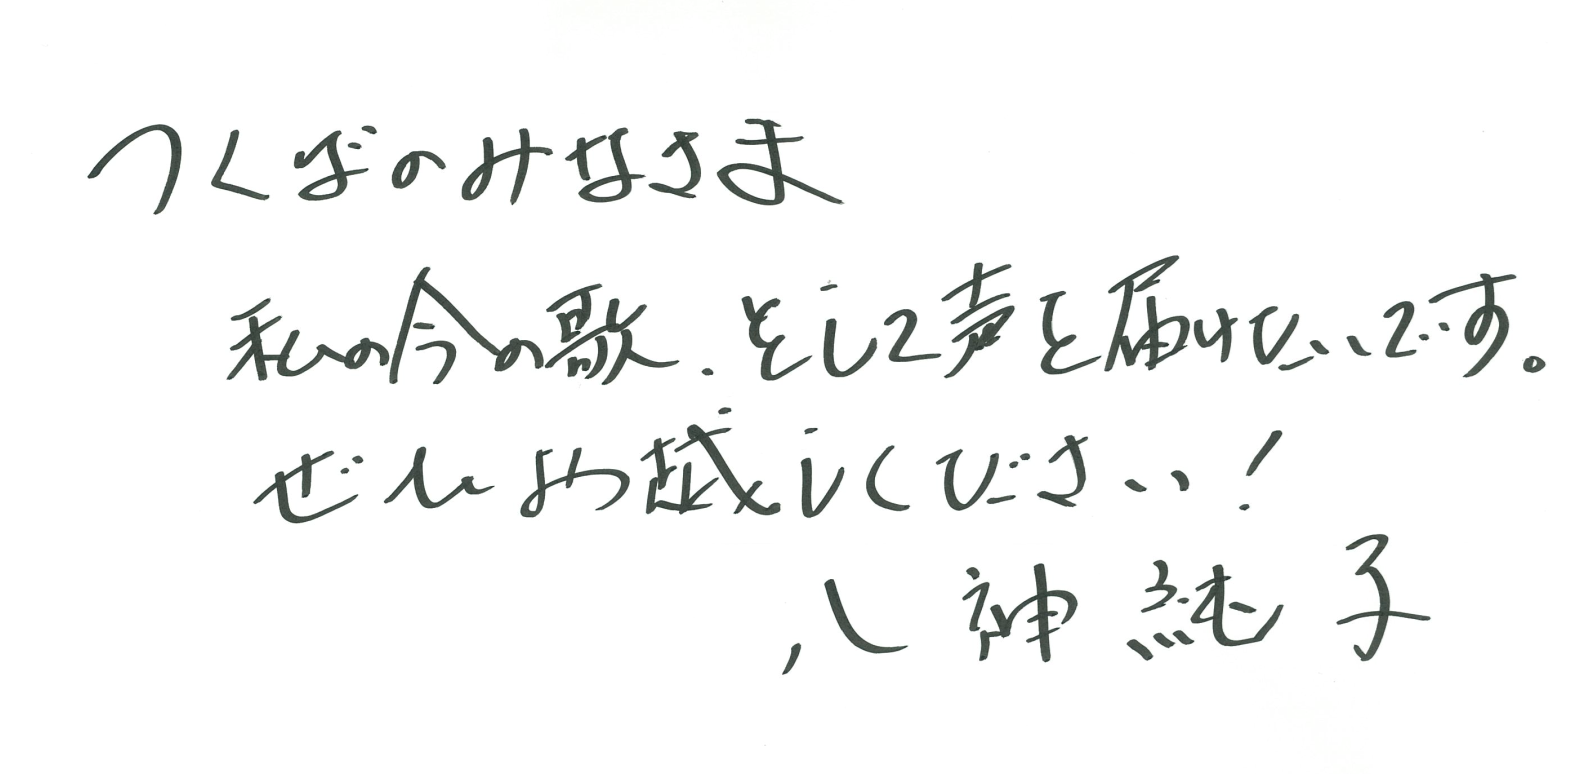 つくばのみなさま
私の今の歌、そして声を届けたいです。
ぜひお越しください！
八神純子